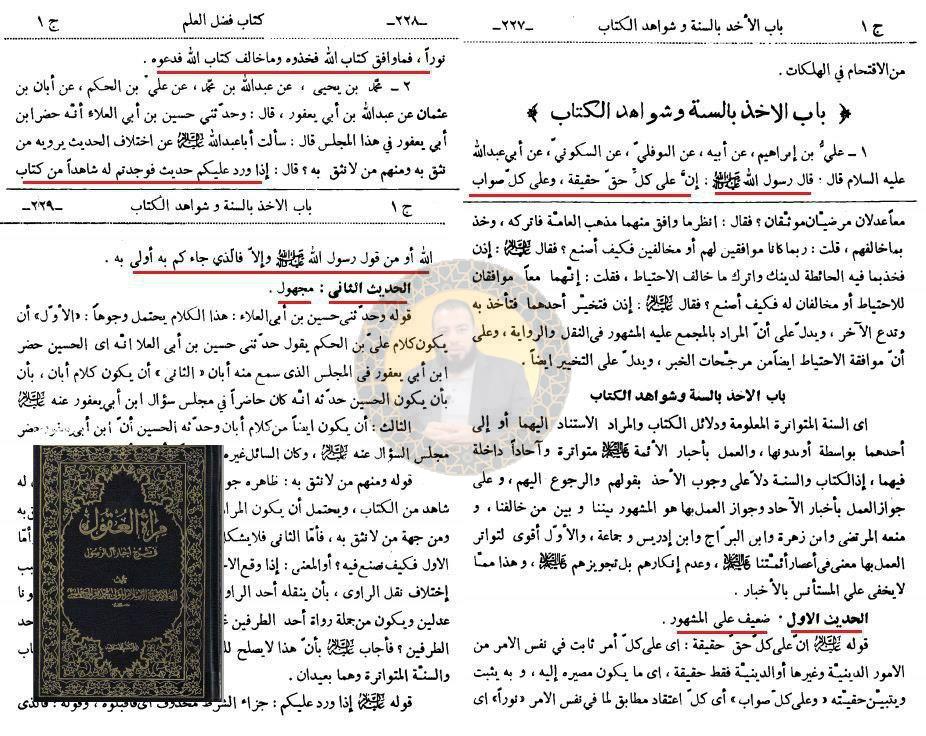 ج ١ باب الأخذ بالسنة و شواهد الكتاب -٢٢٧-
من الاقتحام في الهلكات .
﴿ باب الاخذ بالسنة وشواهد الكتاب ﴾
١ – عليُّ بن إبراهيم، عن أبيه، عن النوفليّ، عن السكونيّ، عن أبي عبدالله
عليه السلام قال : قال رسول الله ﷺ : إنَّ على كلِّ حقّ حقيقة، وعلى كلّ صواب
معاً عدلان مرضيّان موثّقان ؟ فقال : انظر ما وافق منهما مذهب العامّة فاتركه ، وخذ
بماخالفهم ، قلت : ربما كانا موافقين لهم أو مخالفين فكيف أصنع ؟ فقال عليه السلام : إذن
فخذ بما فيه الحائطة لدينك واترك ما خالف الاحتياط ، فقلت : إنّهما معاً موافقان
للاحتياط أو مخالفان له فكيف أصنع ؟ فقال عليه السلام : إذن فتخيّر أحدهما فتأخذ به
وتدع الآخر ، ويدلّ على أنّ المراد بالمجمع عليه المشهور في النقل والرواية ، وعلى
أنّ موافقة الاحتياط ايضاً من مرجّحات الخبر ، ويدلّ على التخيير ايضاً .
باب الأخذ بالسنة وشواهد الكتاب
اى السنة المتواترة المعلومة ودلائل الكتاب والمراد الاستناد اليهما أو إلى
أحدهما بواسطة أو بدونها ، والعمل بأخبار الأئمة عليهم السلام متواترة وآحاداً داخلة
فيهما ، إذ الكتاب والسنة دلّا على وجوب الأخذ بقولهم والرجوع اليهم ، وعلى
جواز العمل بأخبار الآحاد وجواز العمل بها هو المشهور بيننا و بين من خالفنا ، و
منعه المرتضى وابن زهرة وابن البرّاج وابن إدريس و جماعة ، والأوّل أقوى لتواتر
العمل بها معنى في أعصار أئمّتنا عليهم السلام ، وعدم إنكارهم بل تجويزهم عليهم السلام ، و هذا ممّا
لا يخفى على المستأنس بالأخبار .
الحديث الاول : ضعيف على المشهور .
قوله عليه السلام انّ على كلّ حقّ حقيقة : اى على كلّ أمر ثابت في نفس الامر من
الامور الدينيّة وغيرها أو الدينيّة فقط حقيقة ، اى ما يكون مصيره إليه ، و به يثبت
ويتبيّن حقيّته «وعلى كلّ صواب» أى كلّ اعتقاد مطابق لما في نفس الامر «نوراً» اى
ج ١ كتاب فضل العلم -٢٢٨-
نوراً ، فما وافق كتاب الله فخذوه وماخالف كتاب الله فدعوه .
٢ – محمّد بن يحيى ، عن عبدالله بن محمّد، عن عليّ بن الحكم ، عن أبان بن
عثمان عن عبدالله بن أبي يعفور ، قال : وحدّثني حسين بن أبي العلاء أنّه حضر ابن
أبي يعفور في هذا المجلس قال : سألت أباعبدالله عليه السلام عن اختلاف الحديث يرويه من
نثق به ومنهم من لانثق به ؟ قال : إذا ورد عليكم حديث فوجدتم له شاهداً من كتاب
ج ١ باب الاخذ بالسنة و شواهد الكتاب -٢٢٩-
الله أو من قول رسول الله ﷺ وإلّا فالّذي جاءكم به أولى به .
الحديث الثانى : مجهول .
قوله وحدّثني حسين بن أبي العلاء : هذا الكلام يحتمل وجوهاً : «الأوّل» أن
يكون كلام علي بن الحكم يقول حدّثني حسين بن أبي العلا أنّه اى الحسين حضر
ابن أبي يعفور في المجلس الذى سمع منه أبان «الثانى» أن يكون كلام أبان ، بأن
بأن يكون الحسين حدّثه انّه كان حاضراً في مجلس سؤال ابن أبي يعفور عنه عليه السلام
الثالث : أن يكون ايضاً من كلام أبان وحدّثه الحسين أنّ ابن أبي يعفور حضر
مجلس السؤال عنه عليه السلام ، وكان السائل غيره
قوله ومنهم من لانثق به : ظاهره جو
شاهد من الكتاب ، ويحتمل أن يكون المرا
ومن جهة من لانثق به ، فأمّا الثاني فلا يشكل
الاول فكيف نصنع فيه ؟ أو المعنى : إذا وقع الا
إختلاف نقل الراوى ، بأن ينقله أحد الراو
عدلين ويكون من جملة رواة أحد الطرفين غ
الطرفين ؟ فأجاب عليه السلام بأنّ هذا لا يصلح لل
والسنّة المتواترة وهما بعيدان .
قوله عليه السلام إذا ورد عليكم : جزاء الشرط محذوف اى فاقبلوه ، وقوله : فالّذى
مرآة العقول
في شرح أخبار آل الرسول
تأليف